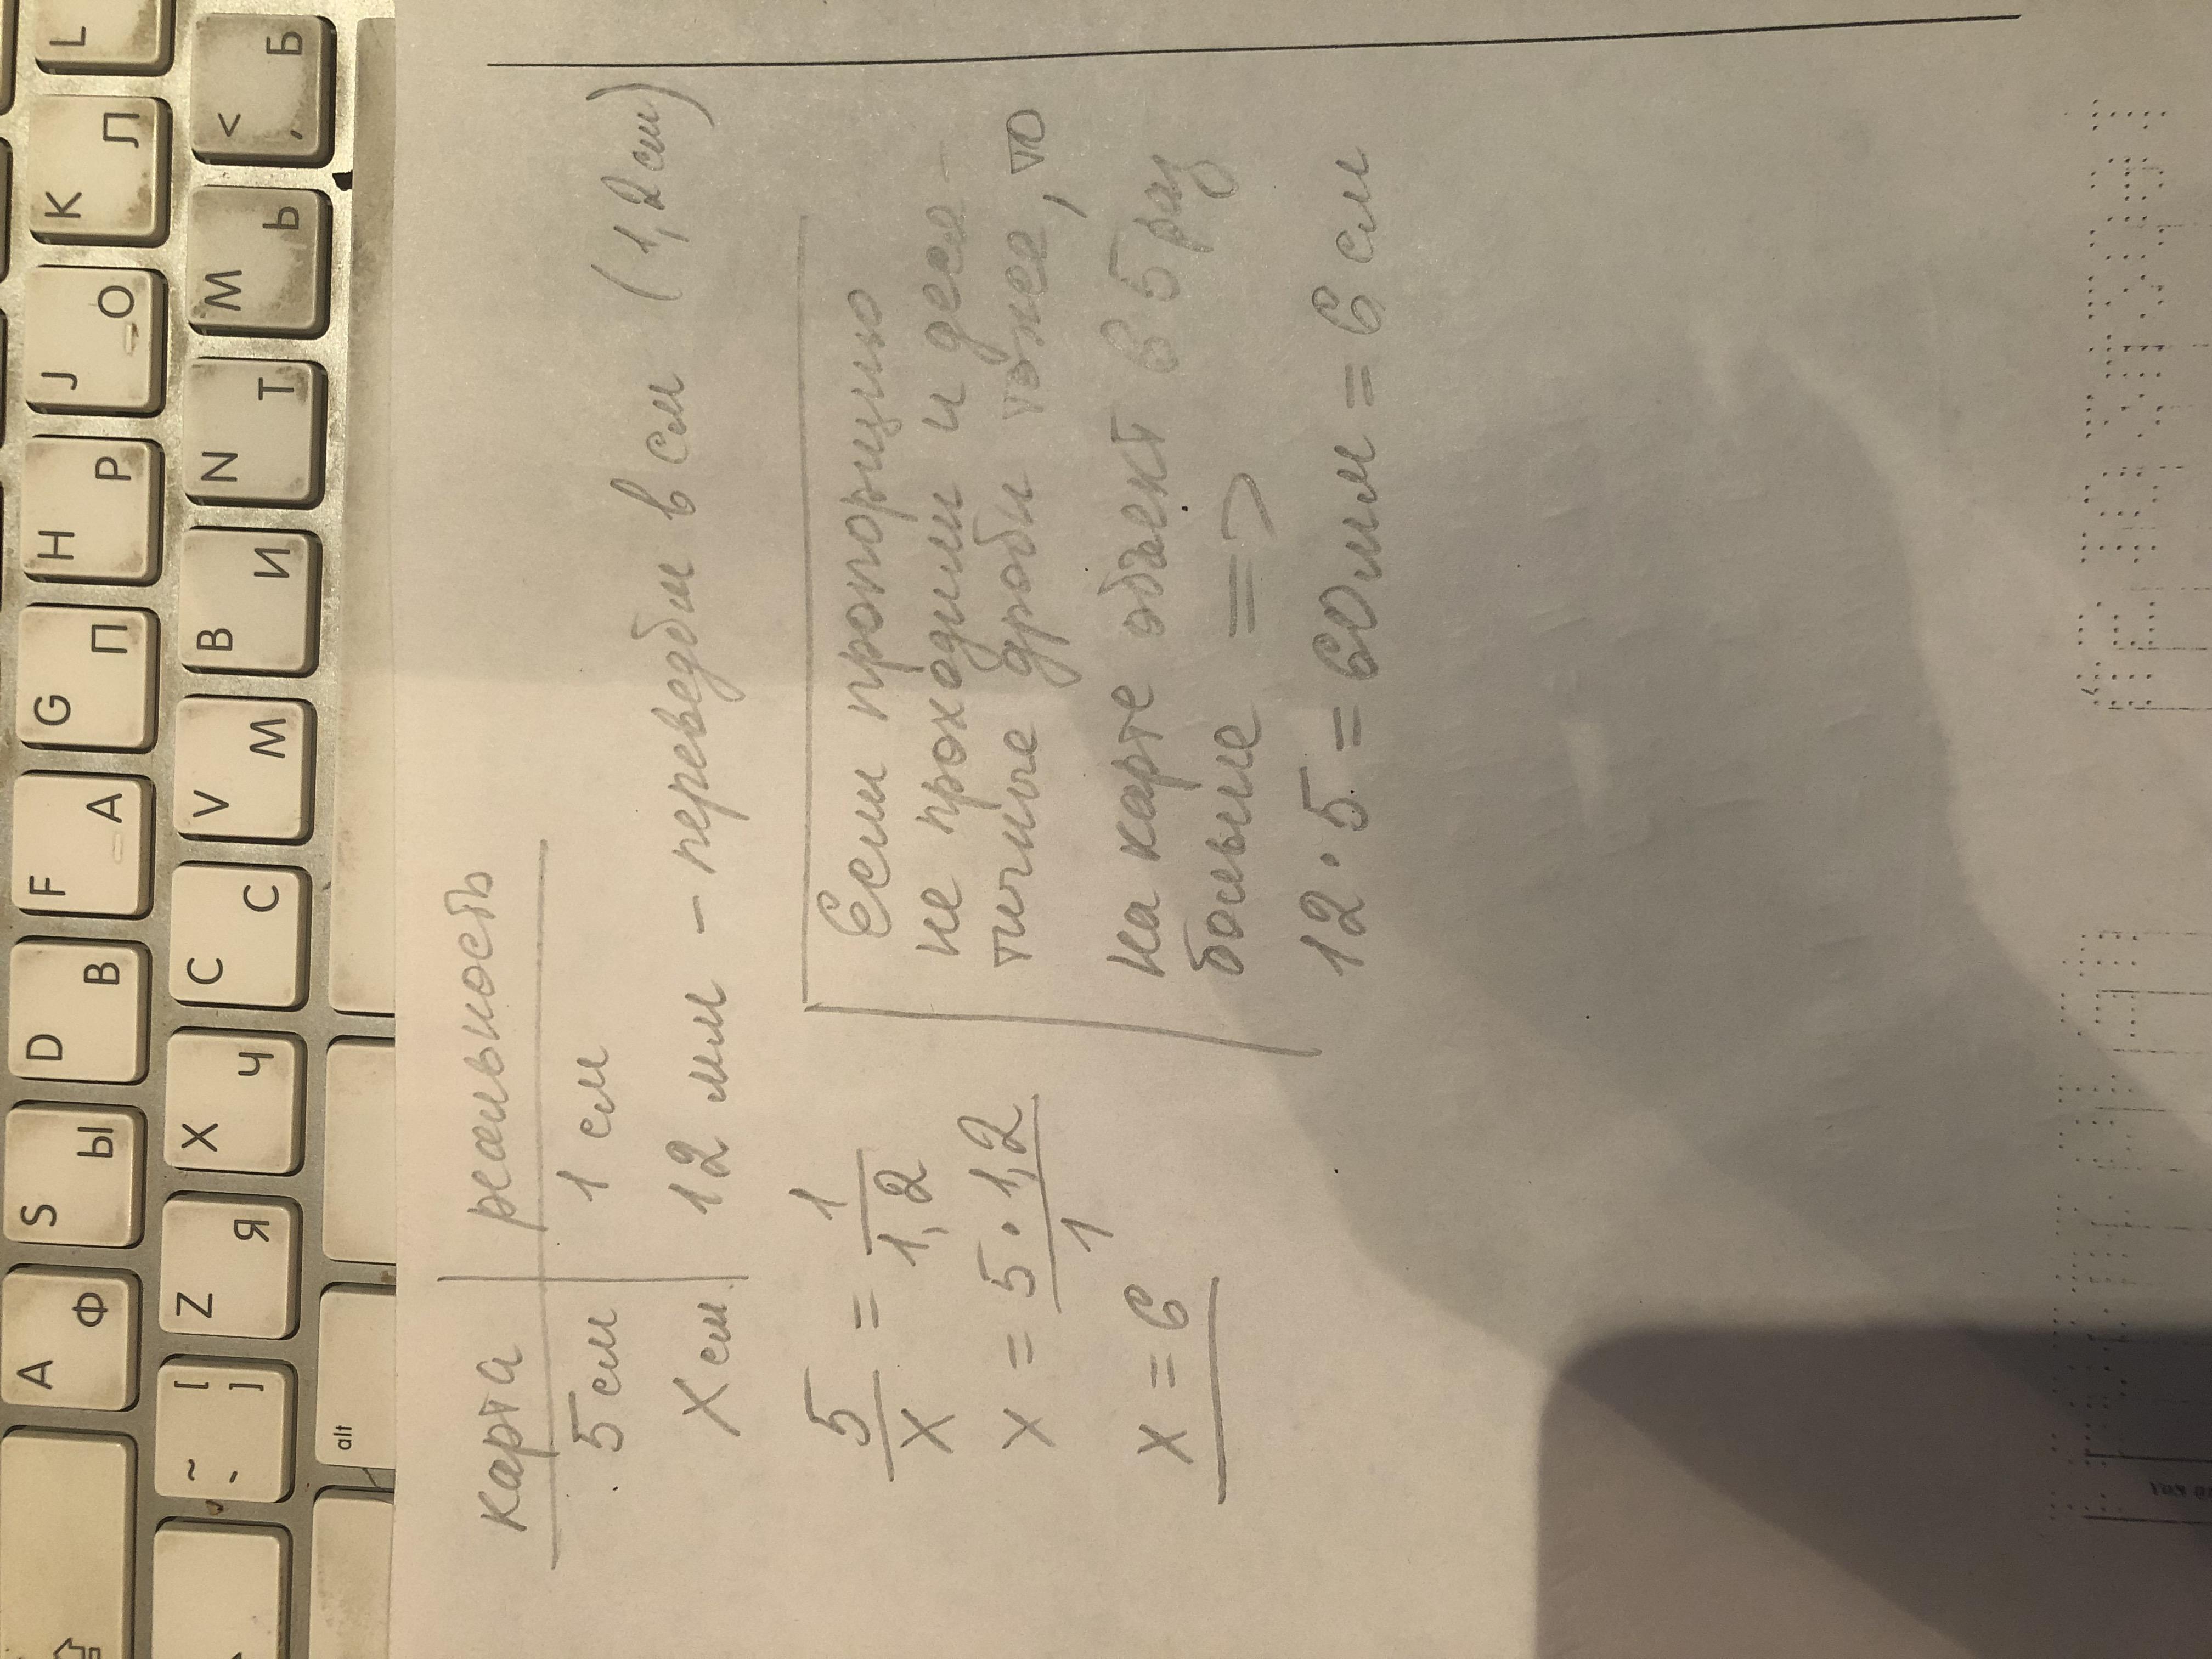 карта | реальность
5 см | 1 см
X см | 12 мм - переведём в см (1,2 см)
5/x = 1/1,2
x = 5·1,2/1
x = 6
Если пропорцию
не проходили и деся-
тичные дроби тоже, то
на карте объект в 5 раз
больше =>
12·5=60мм=6 см
L
A Ф
S Ы
D В
F А
G П
H Р
J О
K Л
~ ` [ ]
Z Я
X Ч
C С
V М
B И
N Т
M Ь
< , Б
alt